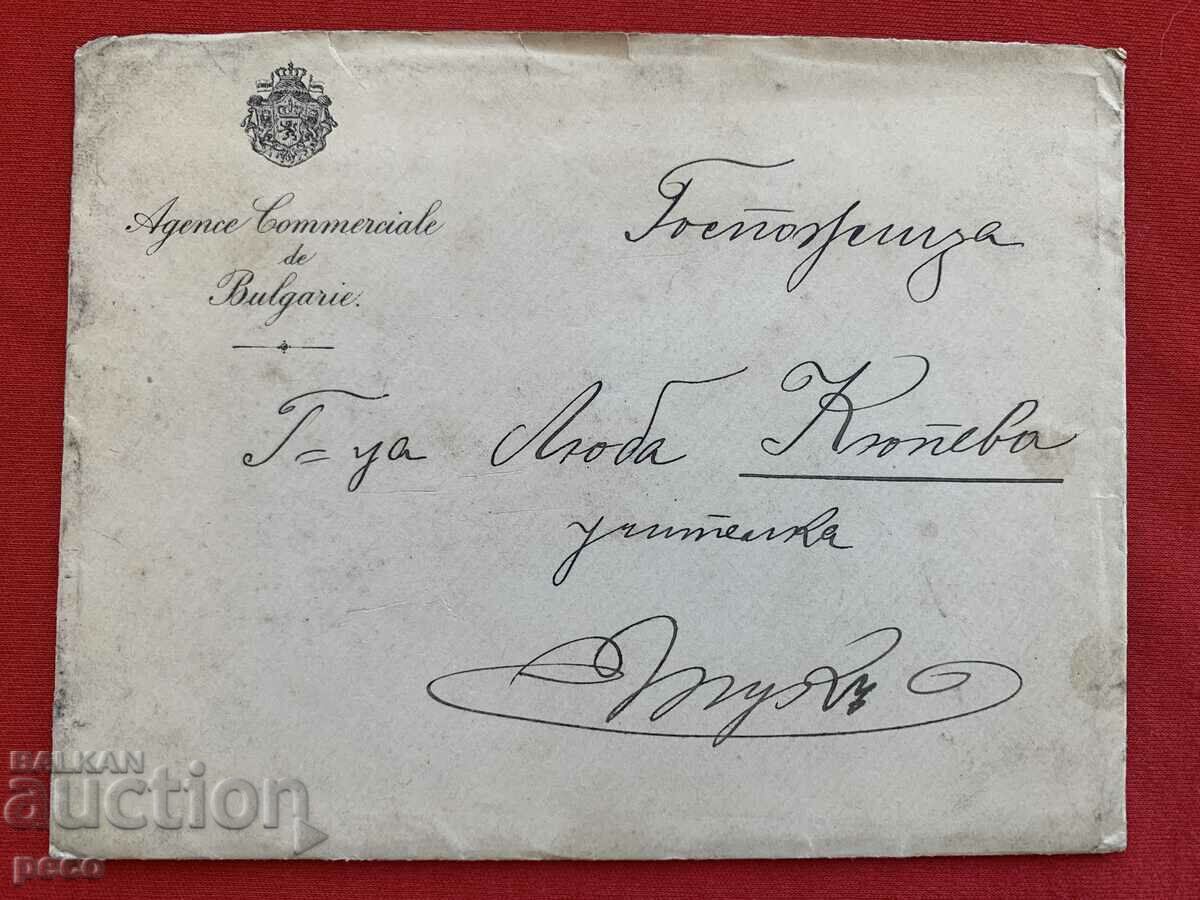 Agence Commerciale
de
Bulgarie.
Госпожица
Г=ца Люба Кютева
учителка
Тукъ
BALKAN
auction
peco